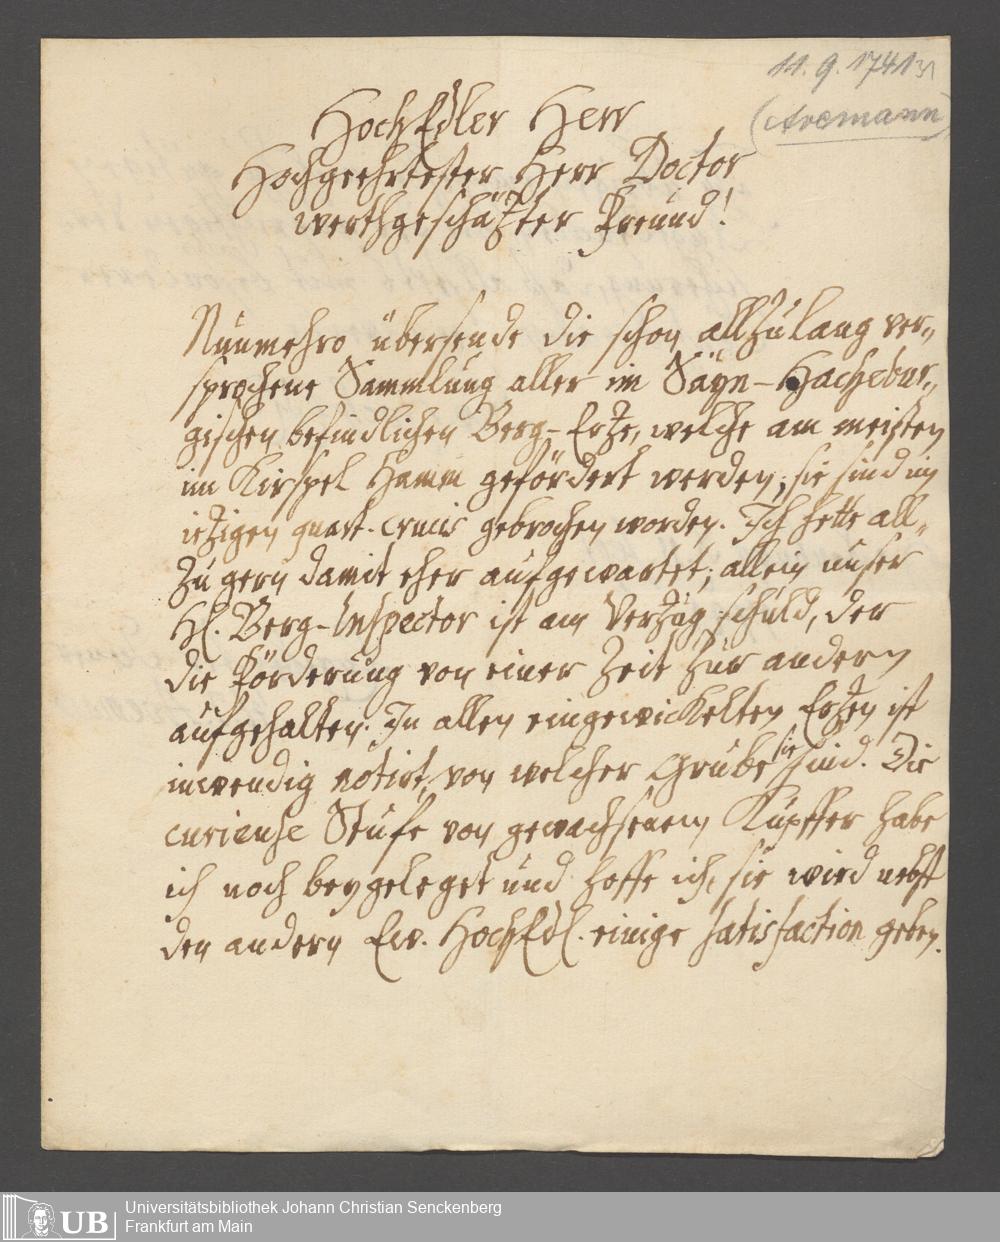 11. 9. 1741
(Avemann)
HochEdler Herr
Hochgeehrtester Herr Doctor
werthgeschäzter Freund!
Nunmehro übersende die schon allzulang ver-
sprochene Sammlung aller im Sayn-Hachebur-
gischen befindlichen Berg-Erze, welche am meisten
im Kirspel Hamm gefördert werden; sie sind im
iezigen quart. crucis gebrochen worden. Ich hette all-
zu gern damit eher aufgewartet; allein unser
H. Berg-Inspector ist am Verzug schuld, der
die Förderung von einer Zeit zur andern
aufgehalten. In allen eingewickelten Erzen ist
inwendig notirt, von welcher Grube sie sind. Die
curieuse Stufe von gewachsenem Kupffer habe
ich noch beygeleget und hoffe ich, sie wird nebst
den andern Ew. HochEdl. einige satisfaction geben.
UB
Universitätsbibliothek Johann Christian Senckenberg
Frankfurt am Main